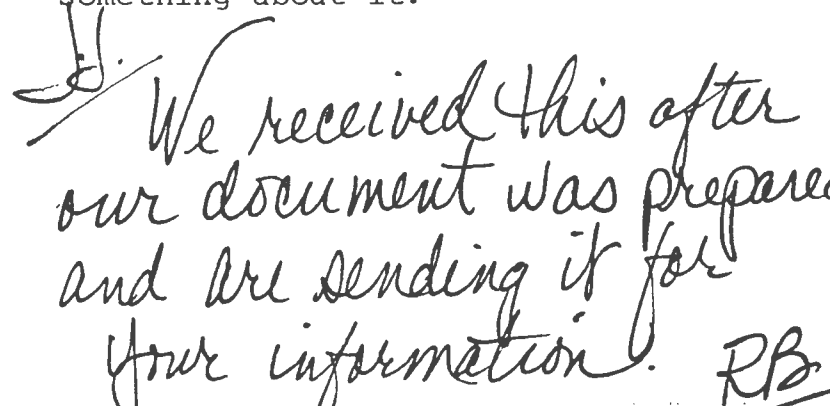 something about it.
We received this after
our document was prepared
and are sending it for
your information.
RB